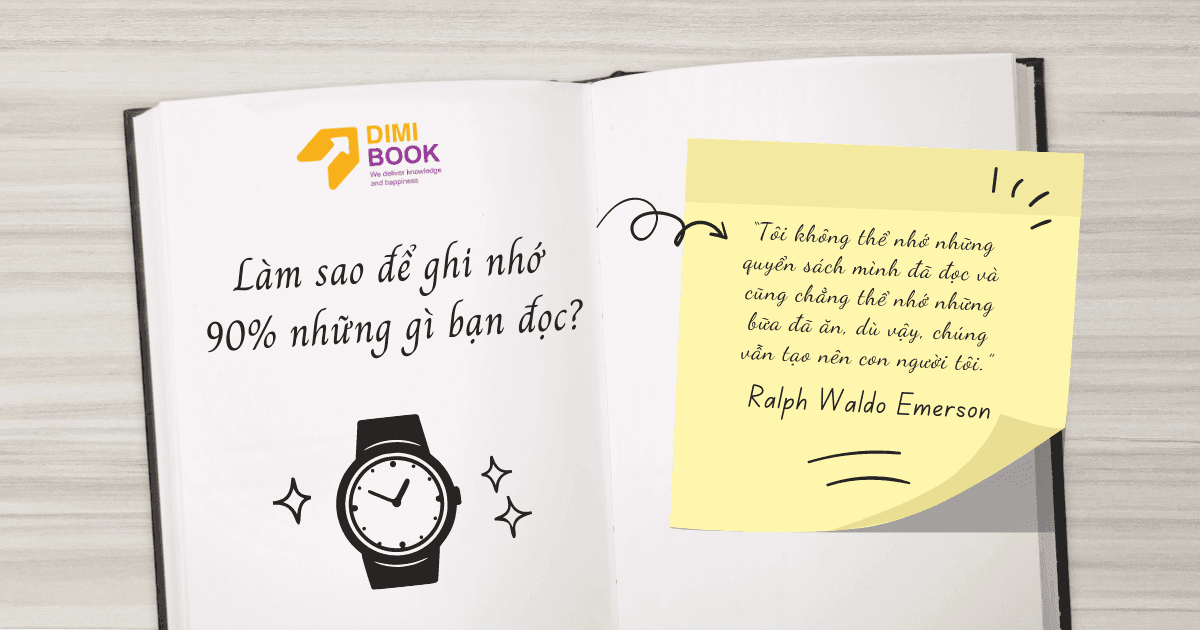 DIMI
BOOK
We deliver knowledge
and happiness
Làm sao để ghi nhớ
90% những gì bạn đọc?
"Tôi không thể nhớ những
quyển sách mình đã đọc và
cũng chẳng thể nhớ những
bữa đã ăn, dù vậy, chúng
vẫn tạo nên con người tôi."
Ralph Waldo Emerson